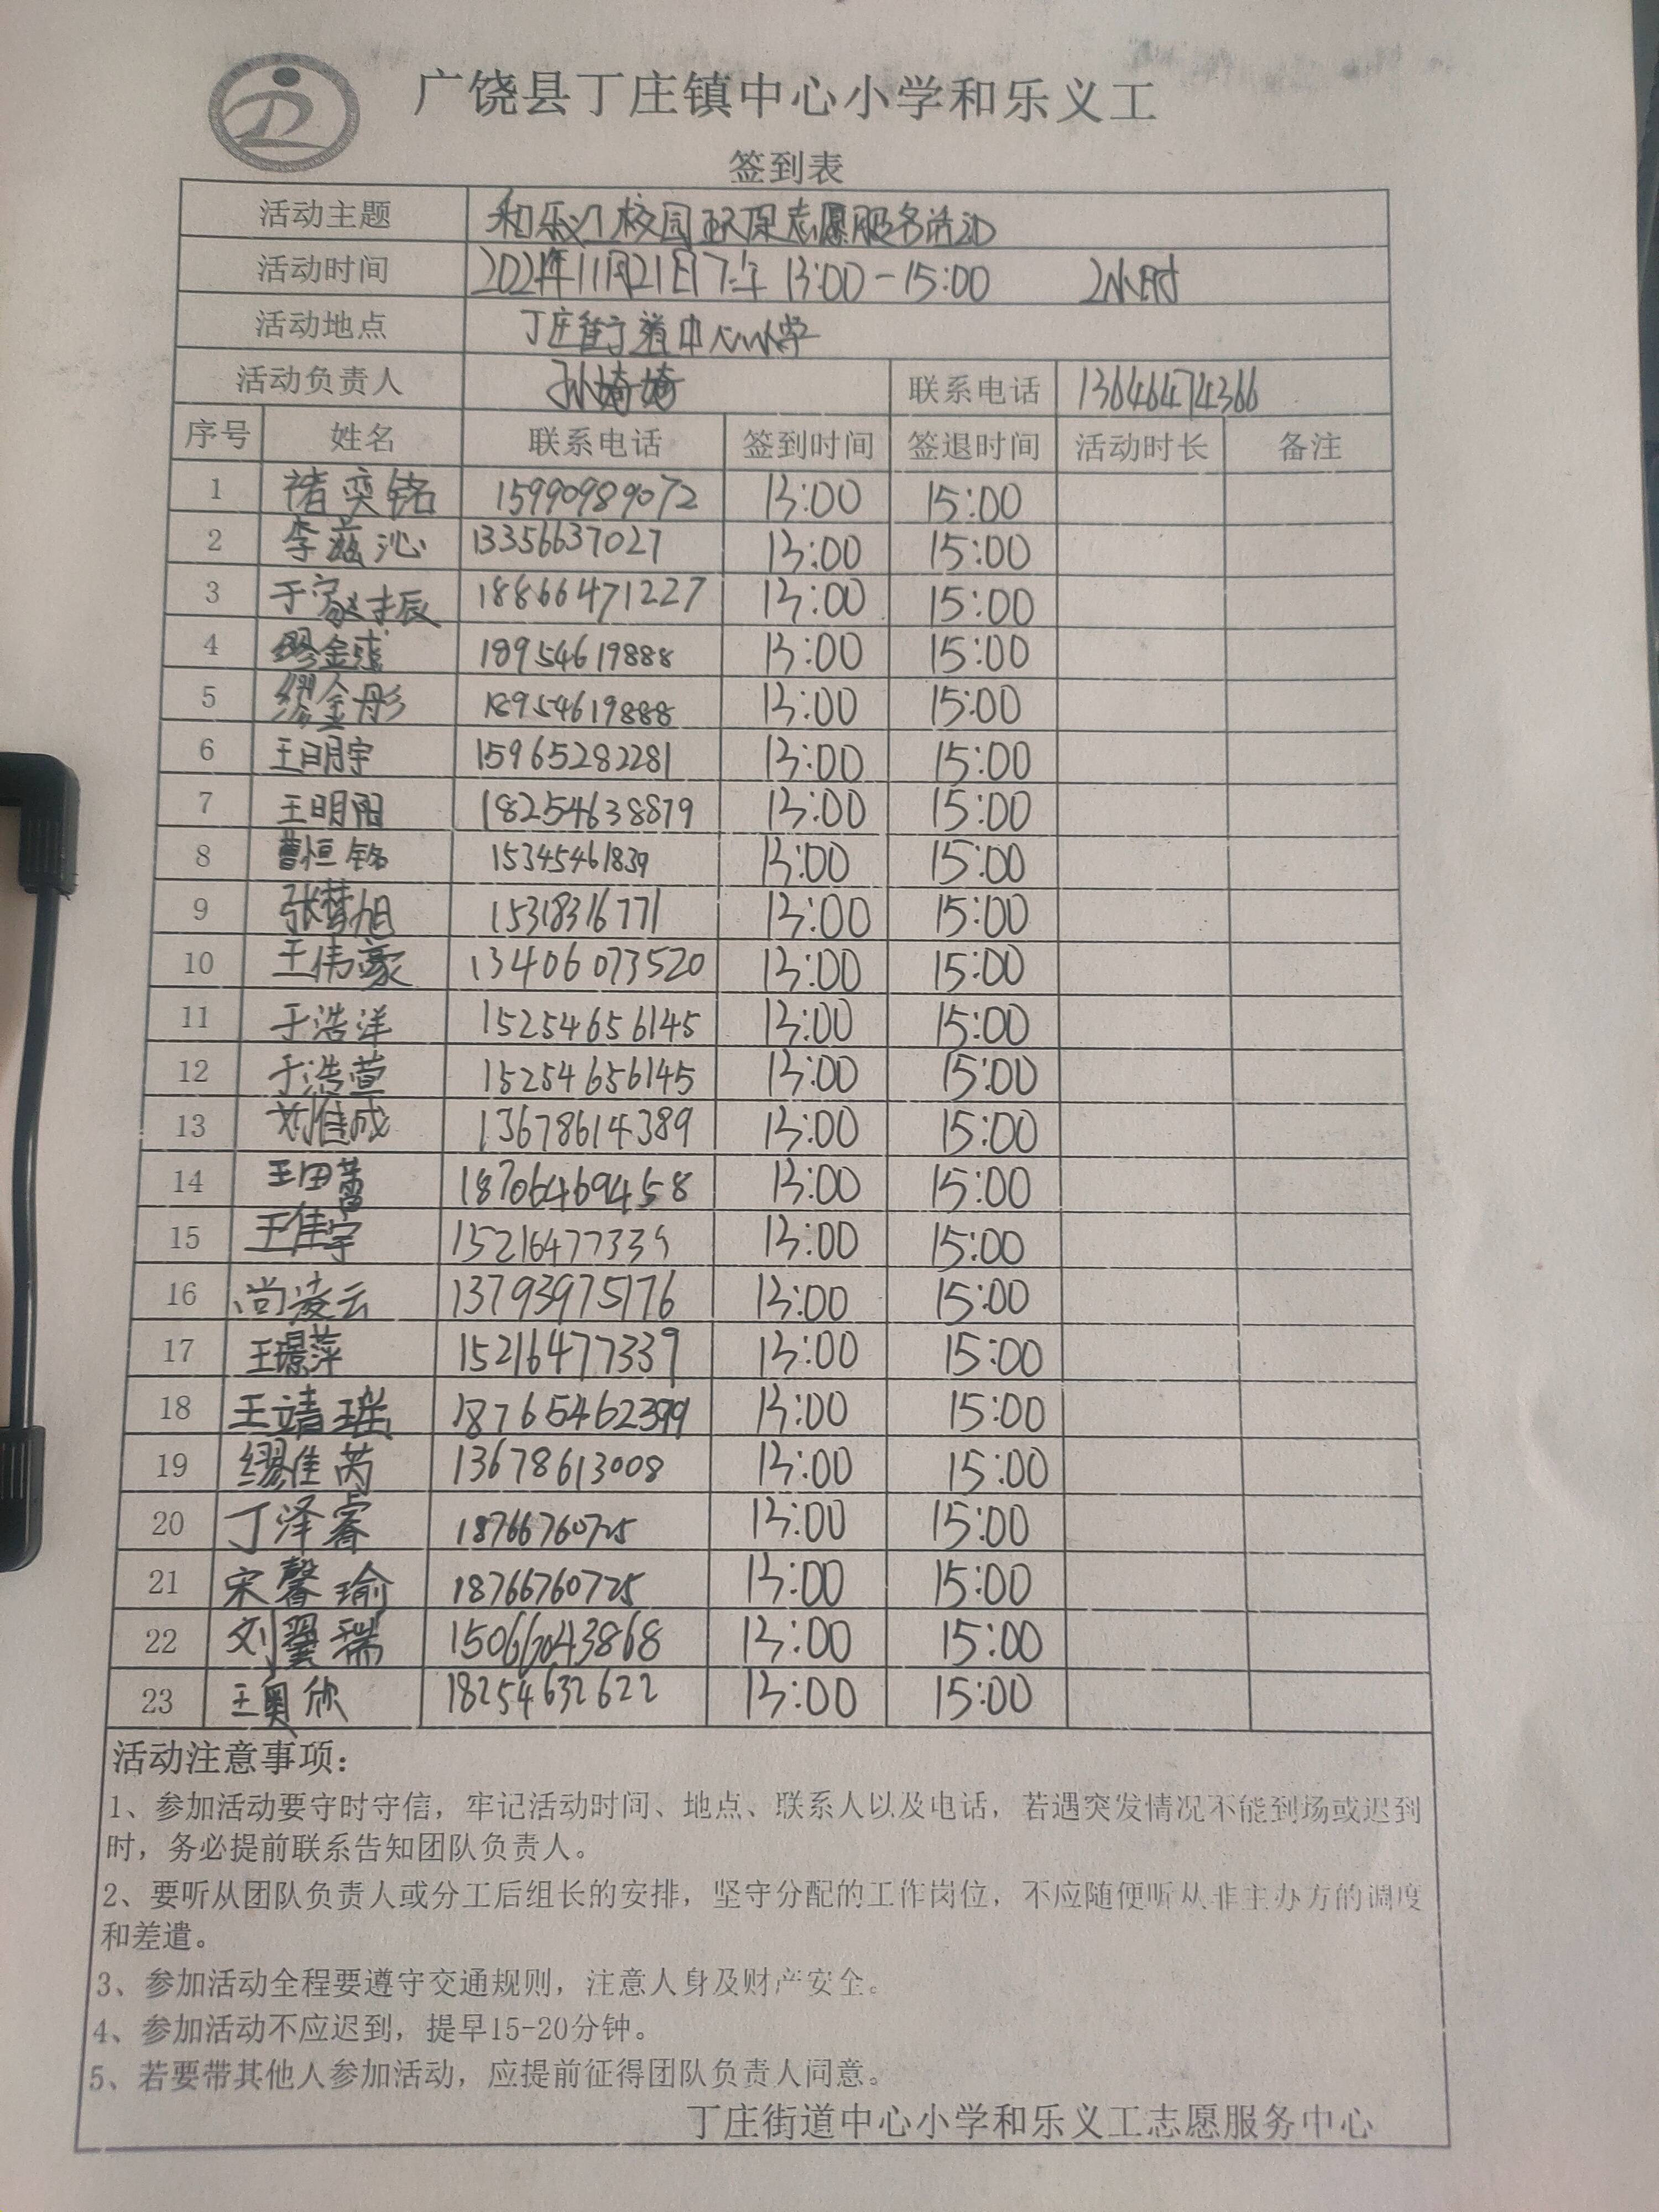 广饶县丁庄镇中心小学和乐义工
签到表
活动主题 和乐义工校园环保志愿服务活动
活动时间 2021年11月21日下午 13:00-15:00 2小时
活动地点 丁庄街道中心小学
活动负责人 孙婍婍 联系电话 13646474366
序号 姓名 联系电话 签到时间 签退时间 活动时长 备注
1 褚奕铭 15990989072 13:00 15:00
2 李兹沁 13356637027 13:00 15:00
3 于家振 18866471227 13:00 15:00
4 缪金 18954619888 13:00 15:00
5 缪金彤 18954619888 13:00 15:00
6 王明宇 15965282281 13:00 15:00
7 王明阳 18254638879 13:00 15:00
8 曹恒铭 15345461839 13:00 15:00
9 张梦旭 15318316771 13:00 15:00
10 王伟豪 13406073520 13:00 15:00
11 于浩洋 15254656145 13:00 15:00
12 于浩萱 15254656145 13:00 15:00
13 刘佳成 13678614389 13:00 15:00
14 王田蕾 18706469458 13:00 15:00
15 王佳宇 15216477339 13:00 15:00
16 尚凌云 13793975176 13:00 15:00
17 王璟萍 15216477339 13:00 15:00
18 王靖瑶 18765462399 13:00 15:00
19 缪佳芮 13678613008 13:00 15:00
20 丁泽睿 18766760725 13:00 15:00
21 宋馨瑜 18766760725 13:00 15:00
22 刘翼瑞 15066043868 13:00 15:00
23 王奥欣 18254632622 13:00 15:00
活动注意事项：
1、参加活动要守时守信，牢记活动时间、地点、联系人以及电话，若遇突发情况不能到场或迟到
时，务必提前联系告知团队负责人。
2、要听从团队负责人或分工后组长的安排，坚守分配的工作岗位，不应随便听从非主办方的调度
和差遣。
3、参加活动全程要遵守交通规则，注意人身及财产安全。
4、参加活动不应迟到，提早15-20分钟。
5、若要带其他人参加活动，应提前征得团队负责人同意。
丁庄街道中心小学和乐义工志愿服务中心